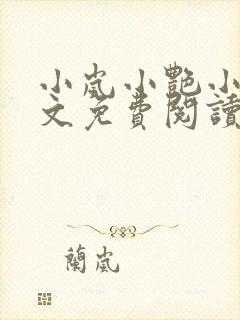 小嵐小艷小
文免費閱讀
蘭嵐